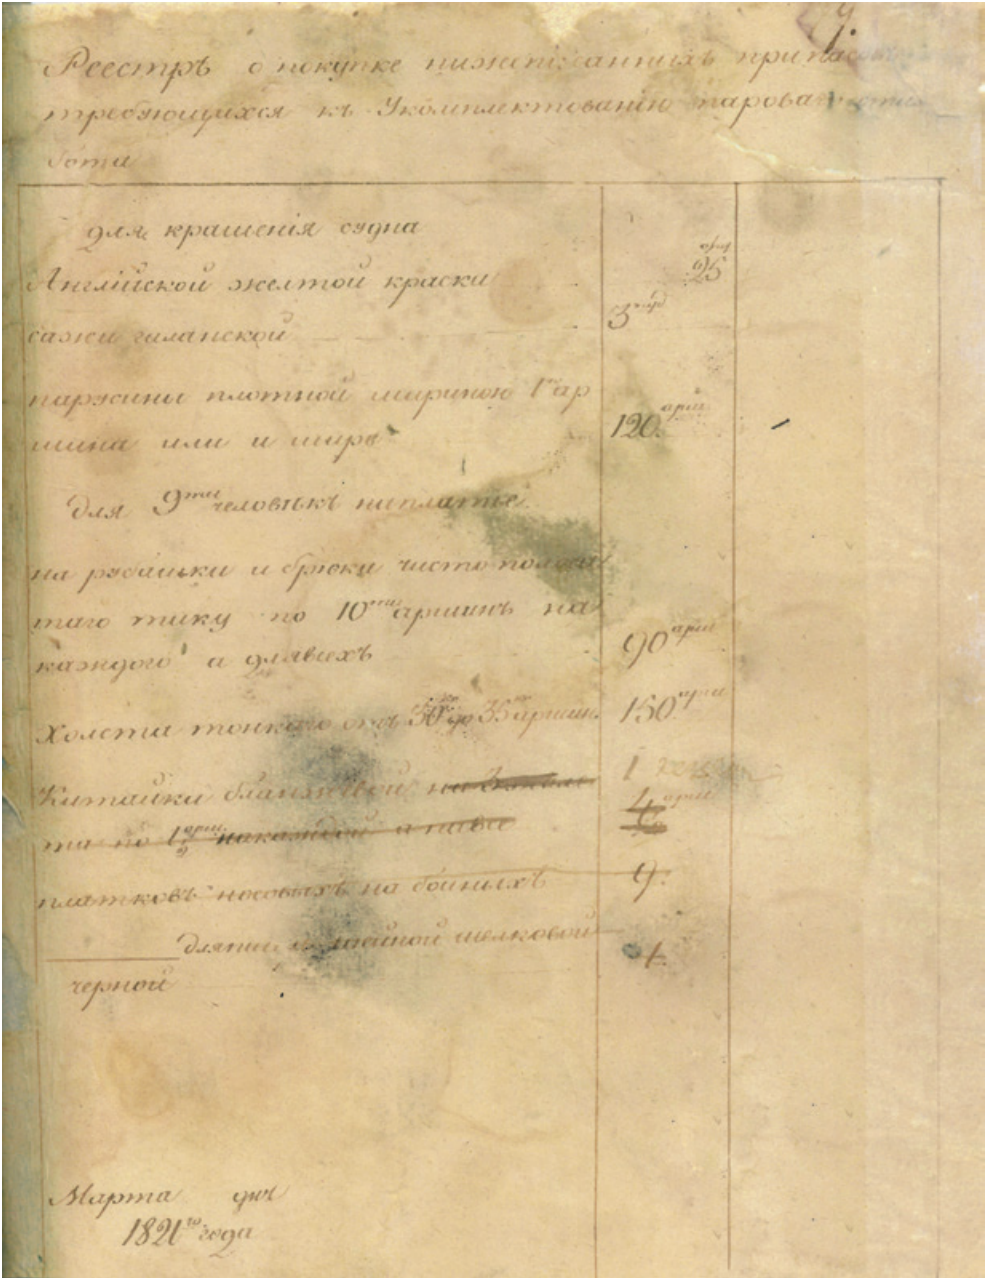 Реестръ о покупке нижеписанныхъ припасовъ
требующихся къ Укомплектованiю парова
бота
для крашенiя судна
Англiйской желтой краски 25 пуд
сажи галанской 3 пуд
парусины плотной шириною 1 ар
шина или и шире 120 арш
Для 9ти человѣкъ на платье
на рубашки и брюки чисто полоса
таго тику по 10ти аршинъ на
каждого а длявсехъ 90 арш
Холста тонкаго отъ 30 до 35 аршин 150 арш
Китайки бланжевой 1 кон
та по 1 арш на каждой 4 арш
платковъ носовыхъ на бойныхъ 9
шейной шелковой 1
черной
Марта дня
1821го года